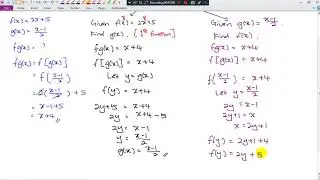 f(x) = 2x+5
g(x) = x-1/2
fg(x) = ?
fg(x) = f[g(x)]
= f(x-1/2)
= 2(x-1/2)+5
= x-1+5
= x+4
Given f(x) = 2x+5
Find g(x).
fg(x) = x+4
f[g(x)] = x+4
Let y = g(x)
f(y) = x+4
2y+5 = x+4
2y = x+4-5
2y = x-1
y = x-1/2
g(x) = x-1/2
Given g(x) = x-1/2.
Find f(x).
fg(x) = x+4
f[g(x)] = x+4
f(x-1/2) = x+4
Let y = x-1/2
2y = x-1
2y+1 = x
x = 2y+1
f(y) = 2y+1+4
f(y) = 2y+5